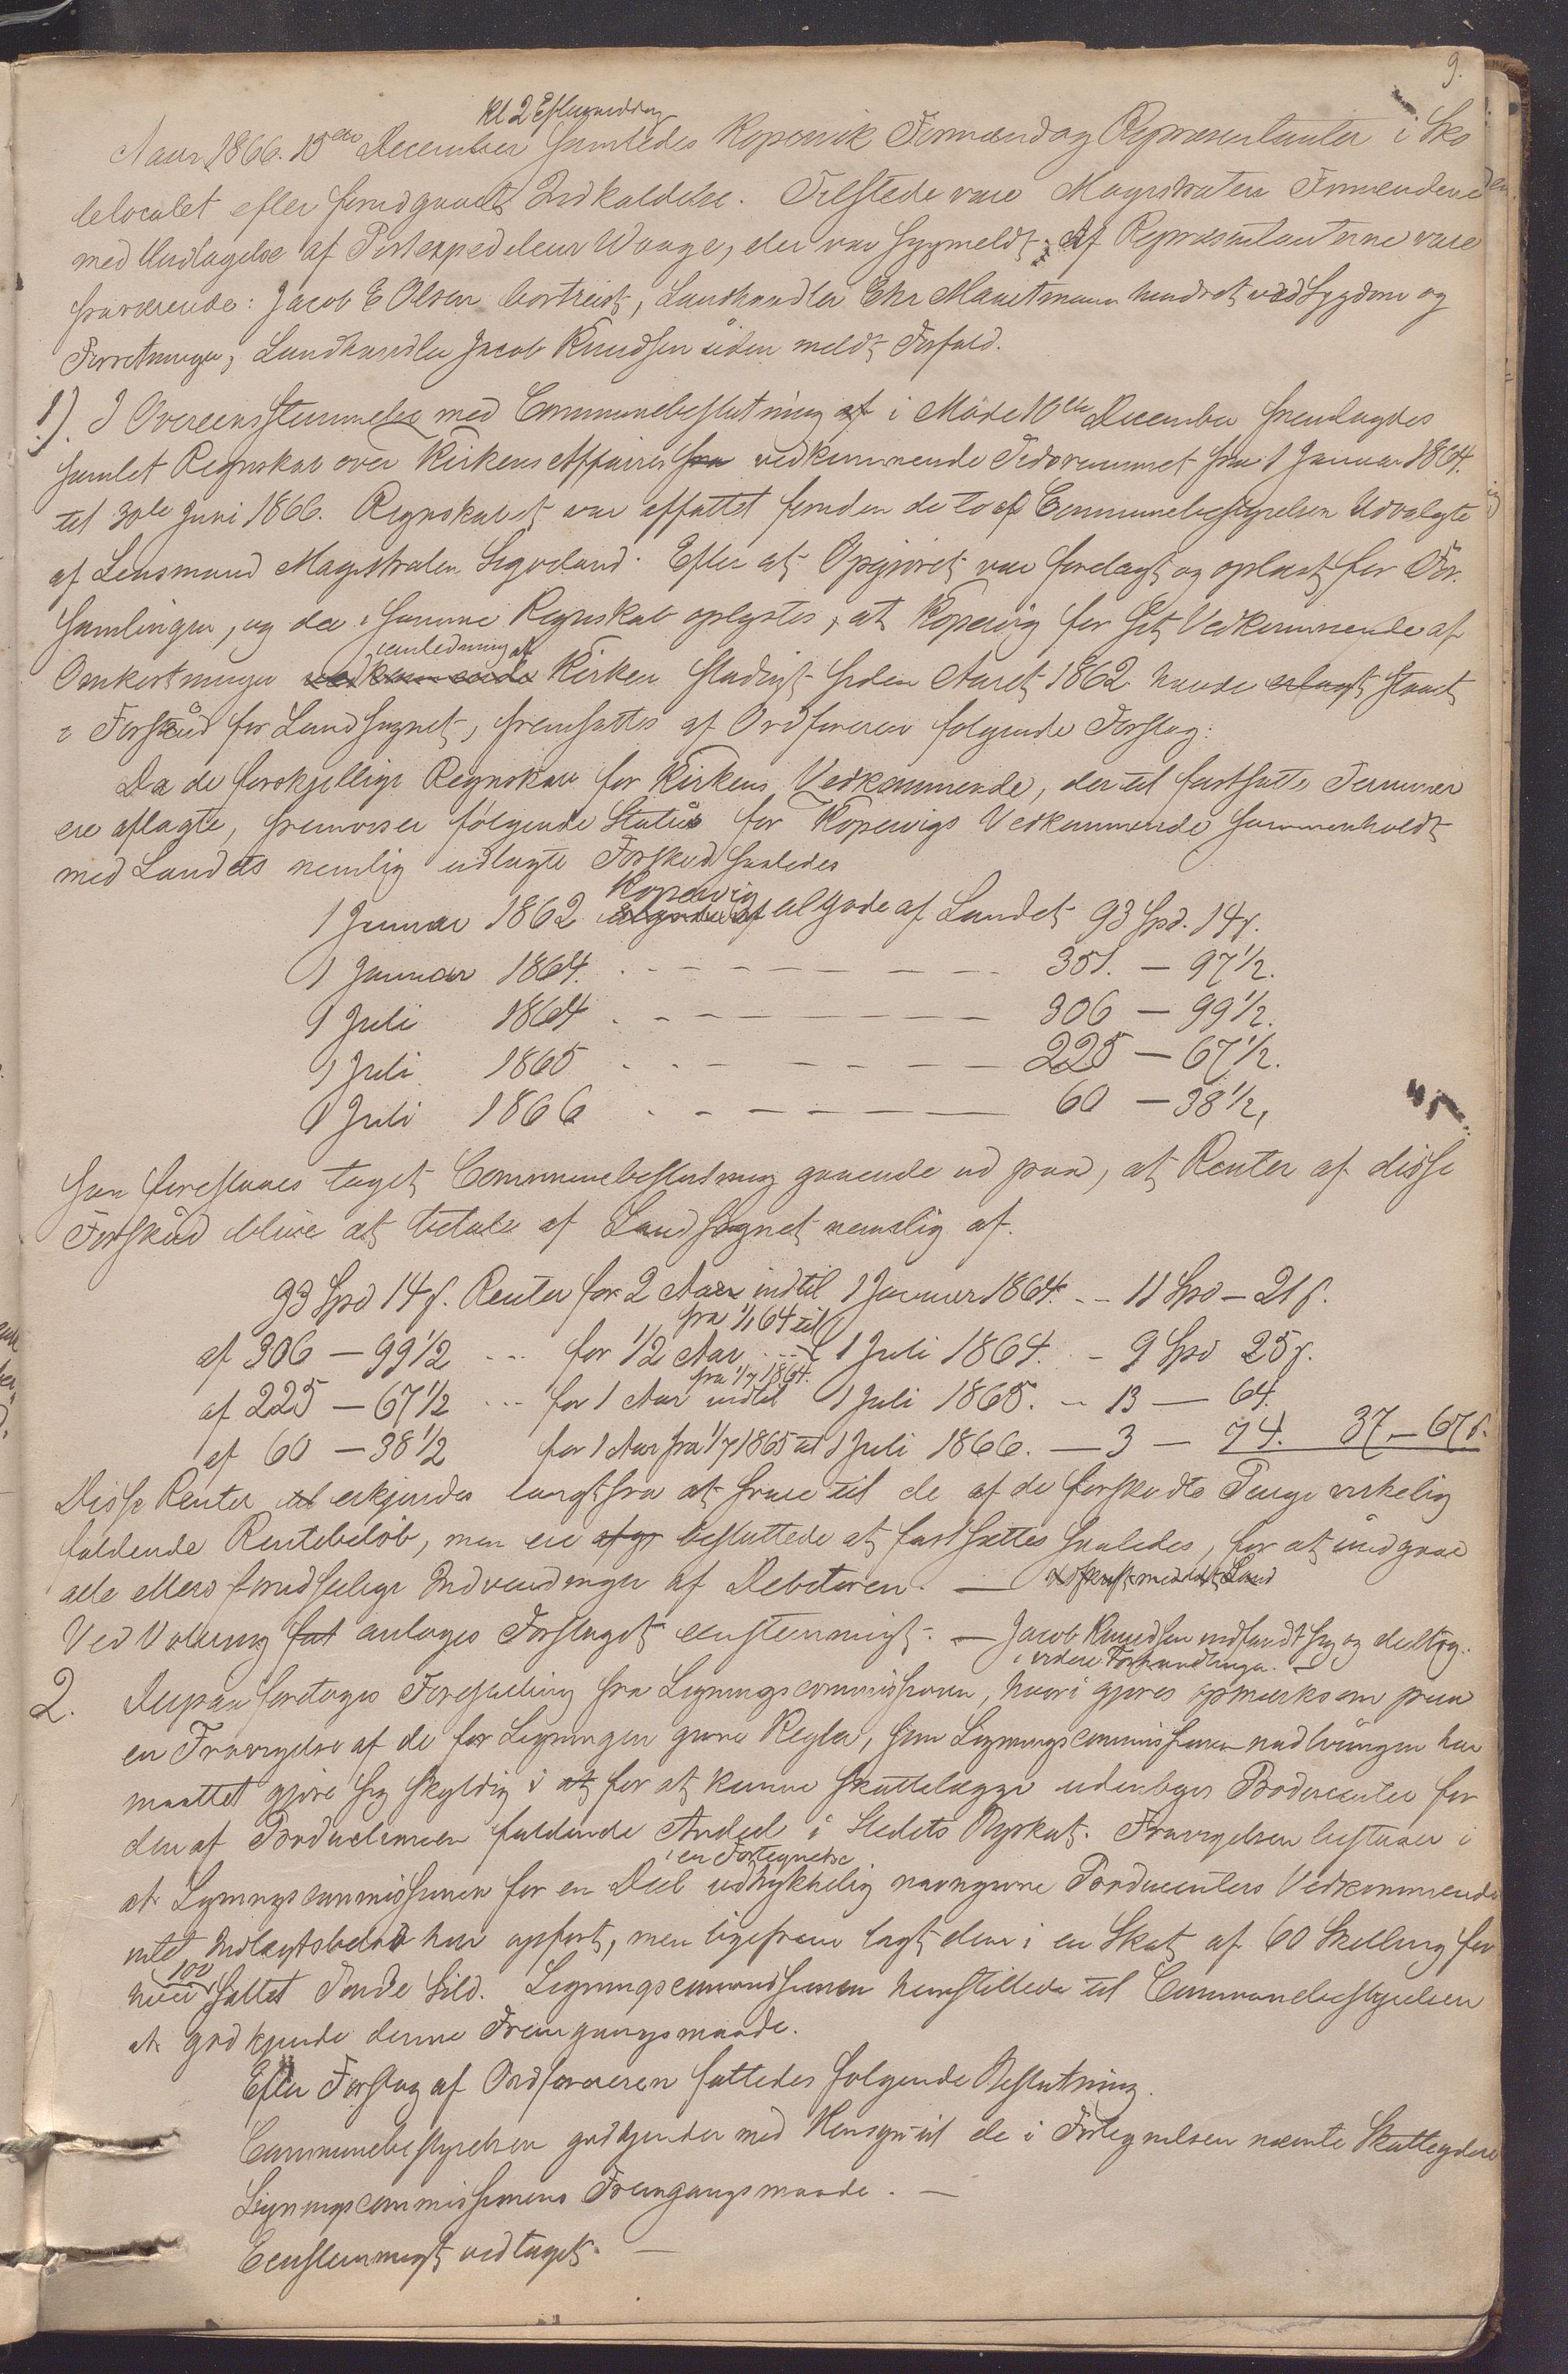 9.
kl 2 Eftermiddag
Aar 1866. 15de December samledes Kopervik Formænd og Repræsentanter i Sko
lelocalet efter foredgaaet Indkaldelse. Tilstede vare Magistraten Formændene
med Undtagelse af Postexpediteur Waage, der var sygmeldt; Af Repræsentanterne vare
fraværende: Jacob E Olsen bortreist, Landhandler Chr Mauritzmann hindret ved Sygdom og
Forretninger, Landhandler Jacob Knudsen uden meldt Forfald.
1). I Overeensstemmelse med Communebeslutning af i Møde 10de December fremlagdes
samlet Regnskab over Kirkens Affairer fra vedkommende Tidsrummet fra 1 Januar 1864.
til 30te Juni 1866. Regnskabet var affattet foruden de to af Communebestyrelsen Udvalgte
af Lensmand Magistraten Sogveland. Efter at Opgjøret var forelagt og oplæst for For-
samlingen, og da i samme Regnskab oplystes, at Kopervig for sit Vedkommende af
i anledning af
Omkostninger vedkommende Kirken stadigt siden Aaret 1862 havde erlagt staaet
i Forskud for Landsognet, fremsattes af Ordføreren følgende Forslag:
Da de forskjellige Regnskab for Kirkens Vedkommende, der til fastsatte Terminer
ere aflagte, fremviser følgende Status for Kopervigs Vedkommende sammenholdt
med Landets nemlig udlagte Forskud saaledes
Kopervig
1 Januar 1862 tilgode af tilgode af Landet 93 Spd. 14 s.
1 Januar 1864. . - - - - - - - 351. - 97 1/2.
1 Juli 1864 . - - - - - - - 306 - 99 1/2.
1 Juli 1865 . - - - - - - - 225 - 67 1/2.
1 Juli 1866 . - - - - - - - 60 - 38 1/2,
saa foreslaaes taget Communebeslutning gaaende ud paa, at Renter af disse
Forskud blive at betale af Landsognet nemlig af.
93 Spd 14 s. Renter for 2 Aar indtil 1 Januar 1864. - - 11 Spd - 21 s.
fra 1/1 64 til
af 306 - 99 1/2 ... for 1/2 Aar ... 1 Juli 1864. - 9 Spd 25 s.
fra 1/7 1864.
af 225 - 67 1/2 ... for 1 Aar indtil 1 Juli 1865. - 13 - 64.
af 60 - 38 1/2 for 1 Aar fra 1/7 1865 til 1 Juli 1866. - 3 - 74. 37 - 67 s.
Disse Renter til erkjendes langtfra at svare til de af de forskudte Penge virkelig
faldende Rentebeløb, men ere besluttede at fastsættes saaledes, for at undgaae
alle ellers forudseelige Indvendinger af Debitoren. -
Ved Votering fat antoges Forslaget eenstemmigt. - Jacob Knudsen indfandt sig og deltog.
i videre Forhandlinger. -
2. Derpaa foretoges Forestilling fra Ligningscommissionen, hvori gjøres opmærksom paa
en Fravigelse af de for Ligningen givne Regler, som Ligningscommissionen nødtvungen har
maattet gjøre sig skyldig i at for at kunne skattelægge udenbyes Producenter for
den af Productionen faldende Andeel i Stedets Byskat. Fravigelsen bestaaer i
i en Fortegnelse
at Ligningscommissionen for en Deel udtrykkelig navngivne Producenters Vedkommende
intet Indtægtsbeløb har opført, men ligefrem lagt dem i en Skat af 60 Skilling for
100
hver saltet Tønde Sild. Ligningscommissionen henstillede til Communebestyrelsen
at godkjende denne Fremgangsmaade.
Efter Forslag af Ordføreren fattedes følgende Beslutning.
Communebestyrelsen godkjender med Hensyn til de i Fortegnelsen nævnte Skatteydere
Ligningscommissionens Fremgangsmaade. -
Eenstemmigt vedtaget. -